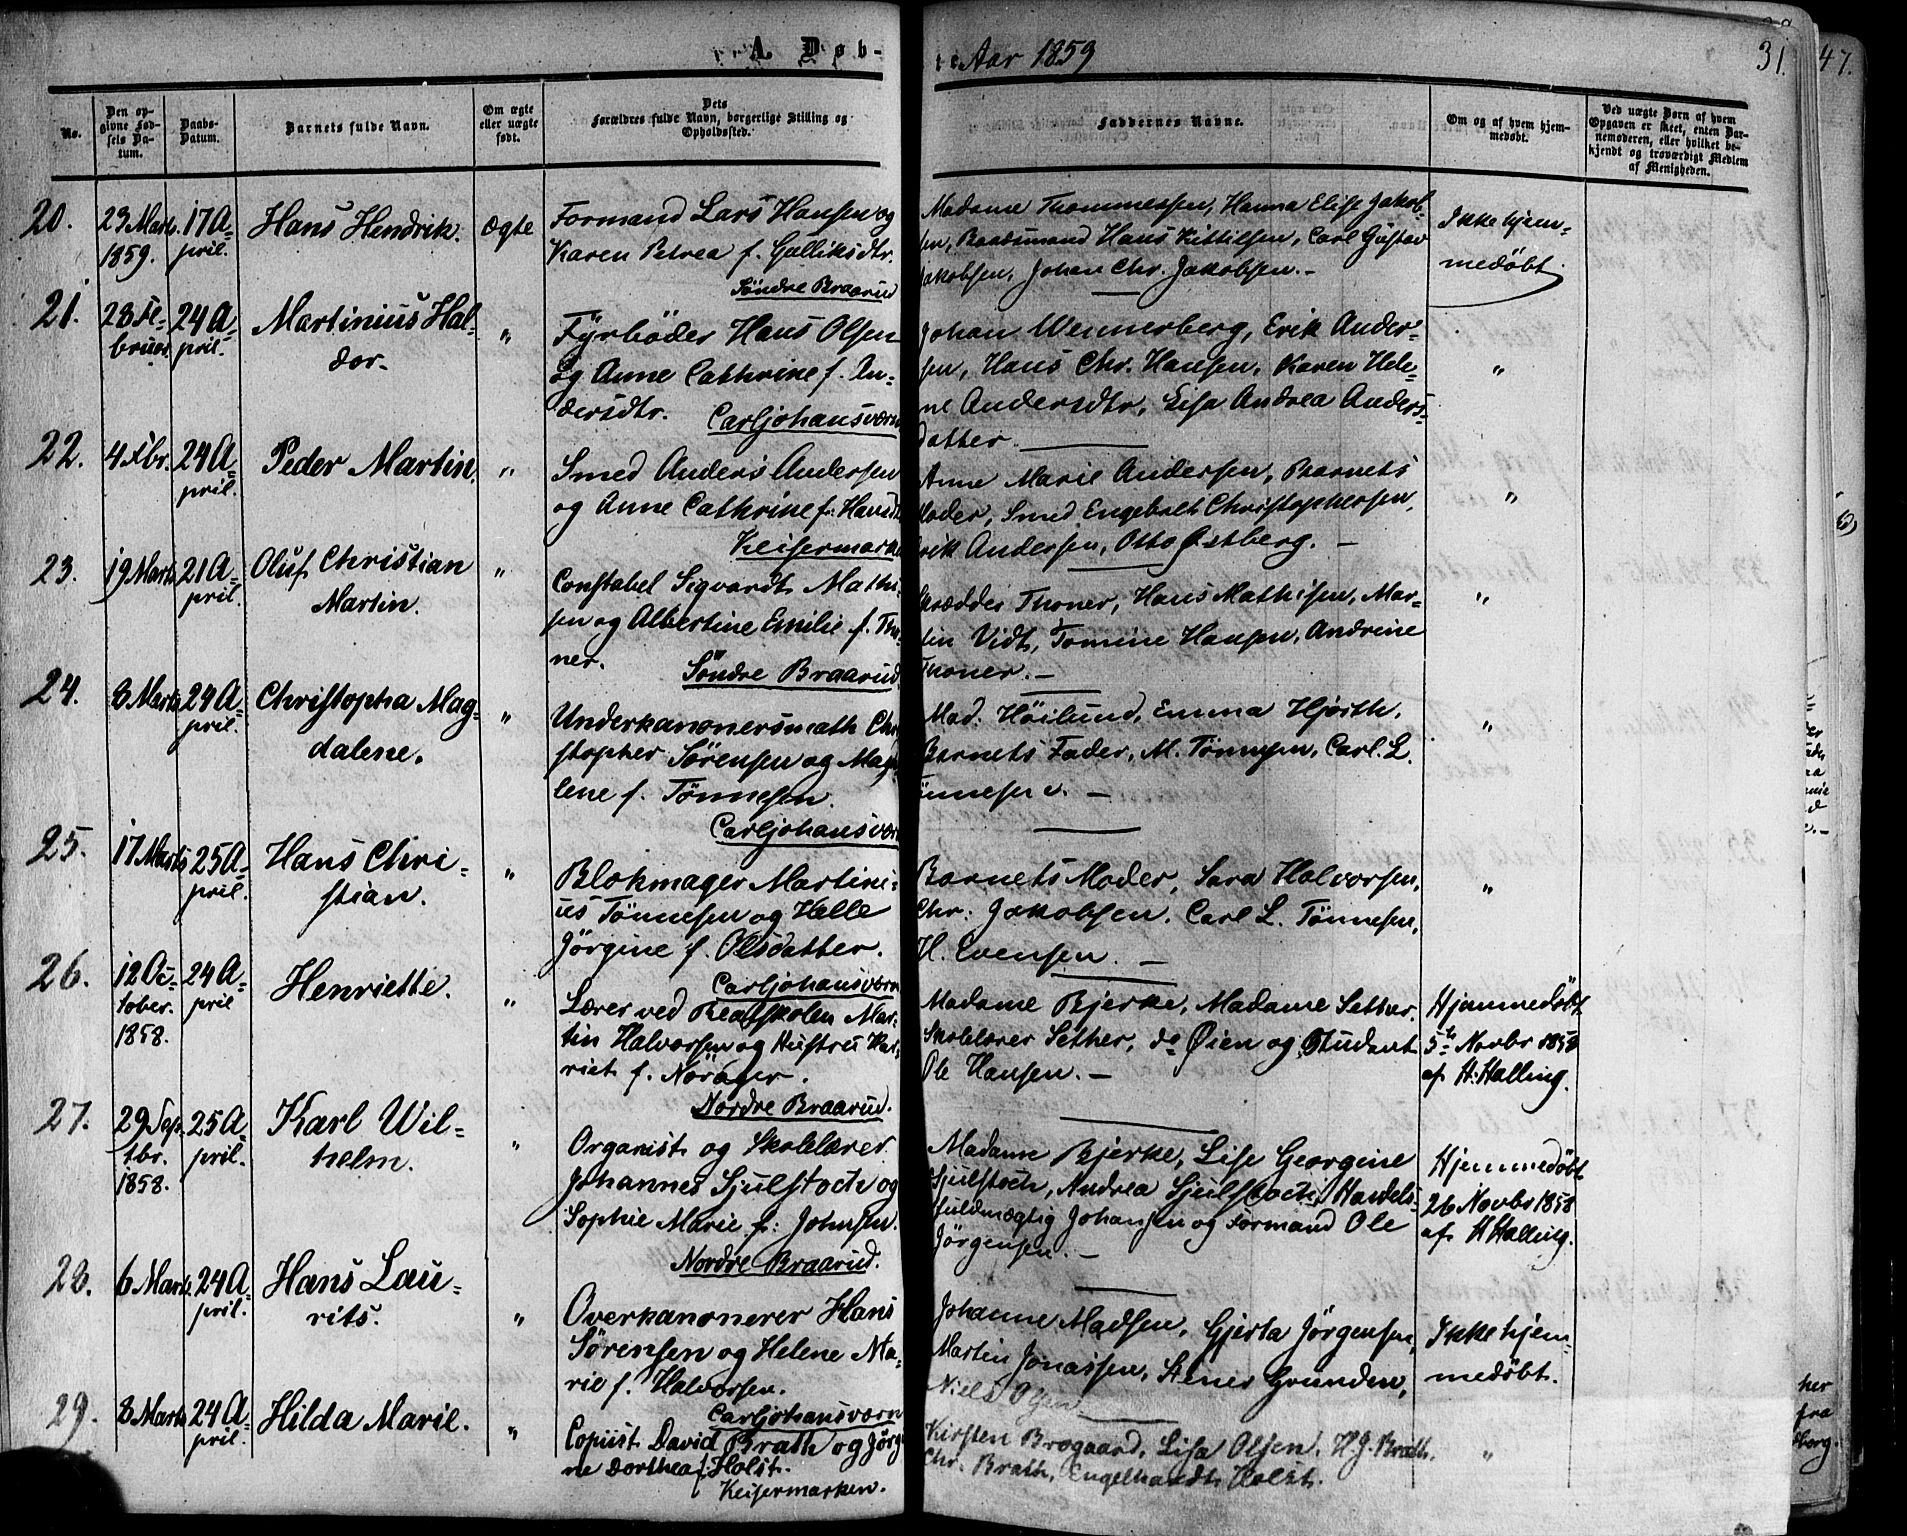 A. Døb-
Aar 1859
31.
47.
No.
Den op-
givne Fød-
sels Da-
tum.
Daabs-
Datum.
Barnets fulde Navn.
Om ægte
eller uægte
født.
Dets
Forældres fulde Navn, borgerlige Stilling og
Opholdssted.
Faddernes Navne.
Om og af hvem hjem-
medøbt.
Ved uægte Børn af hvem
Opgaven er skeet, enten Bar-
nemoderen, eller hvilket be-
kjendt og troværdigt Medlem
af Menigheden.
20.
23 Marts
1859.
17 A-
pril.
Hans Hendrik.
Ægte
Formand Lars Hansen og
Karen Petrea f. Galliksdtr.
Søndre Braarud
Madame Thommessen, Hanna Elise Jakob-
sen, Baadsmand Hans Kittilsen, Carl Gustav
Jakobsen, Johan Chr. Jakobsen. –
Ikke hjem-
medøbt.
21.
28 Fe-
bruar.
24 A-
pril.
Martinius Hal-
dor.
"
Fyrbøder Hans Olsen
og Anne Cathrine f. An-
dersdtr.
Carljohansværn
Johan Wennerberg, Erik Ander-
sen, Hans Chr. Hansen, Karen Hele-
ne Andersdtr, Lisa Andrea Anders-
datter.
"
22.
4 Fbr.
24 A-
pril.
Peder Martin.
"
Smed Anders Andersen
og Anne Cathrine f. Hansdt
Keisermarke
Anne Marie Andersen, Barnets
Moder, Smed Engebret Christophersen,
Erik Andersen, Otto Østberg. –
"
23.
19 Marts
21 A-
pril.
Oluf Christian
Martin.
"
Constabel Sigvardt Mathi-
sen og Albertine Emilie f. Tho-
ner.
Søndre Braarud
Skrædder Thoner, Hans Mathisen, Mar-
tin Vidt, Tomine Hansen, Andrine
Thoner. –
"
24.
8 Marts
24 A-
pril.
Christopha Mag-
dalene.
"
Underkanonersmath Chri
stopher Sørensen og Magd
lene f. Tønnesen.
Carljohansværn
Mad. Höilund, Emma Hjorth,
Barnets Fader, M. Tønnesen, Carl L.
Tønnesen. –
"
25.
17 Marts
25 A-
pril.
Hans Chri-
stian.
"
Blokmager Martini-
us Tønnesen og Helle
Jørgine f. Olsdatter.
Carljohansværn
Barnets Moder, Sara Halvorsen,
Chr. Jakobsen, Carl L. Tønnesen,
H. Evensen. –
"
26.
12 Oc-
tober.
1858.
24 A-
pril
Henriette.
"
Lærer ved Realskolen Mar-
tin Halvorsen og Hustru Har-
riet f. Norager.
Nordre Braarud.
Madame Bjerke, Madame Sether,
Skolelærer Sether, do Øien og Student
Ole Hansen. –
Hjemmedøbt
5te Novbr 1858
af H. Halling.
27.
29 Sep-
tbr.
1858.
25 A-
pril.
Karl Wil-
helm.
"
Organist og Skolelærer
Johannes Sjulstoch og
Sophie Marie f. Johnsen.
Nordre Braarud.
Madame Bjerke, Lise Georgine
Sjulstoch, Andrea Sjulstoch, Handels-
fuldmægtig Johansen og Formand Ole
Jørgensen. –
Hjemmedøbt
26 Novbr 1858
af H Halling.
28.
6 Marts
24 A-
pril.
Hans Lau-
rits.
"
Overkanonerer Hans
Sørensen og Helene Ma-
rie f. Halvorsen.
Carljohansværn
Johanne Madsen, Gjerta Jørgensen,
Martin Jonassen, Stener Grunden,
Niels Olsen
Ikke hjem-
medøbt.
29.
8 Marts
24 A-
pril.
Hilda Marie.
"
Copiist David Brath og Jørgi
ne Dorthea f. Holst.
Keisermarken.
Kirsten Brogaard, Lisa Olsen, H. J. Brath,
Chr. Brath, Engelhardt Holst.
"
her
fra